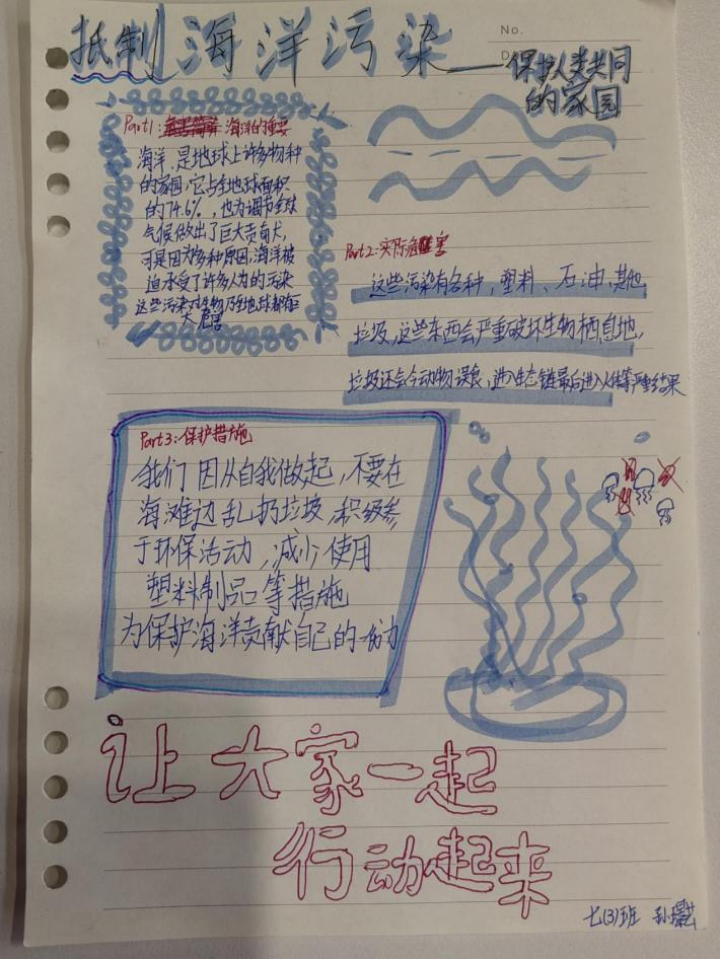 No.
抵制海洋污染——保护人类共同
的家园
Part1: 海洋的重要
海洋,是地球上许多物种
的家园,它占全地球面积
的74.6%,也为调节全球
气候做出了巨大贡献,
可是因为多种原因,海洋被
迫承受了许多人为的污染
这些污染对生物乃至地球都有巨
大危害
Part2:实际危害
这些污染有各种,塑料、石油、其他
垃圾,这些东西会严重破坏生物栖息地,
垃圾还会令动物误食,进入生态链最后进入人体等严重结果
Part3:保护措施
我们因从自我做起,不要在
海滩边乱扔垃圾,积级参
于环保活动,减少使用
塑料制品等措施
为保护海洋贡献自己的一份力
让大家一起
行动起来
七(3)班 孙